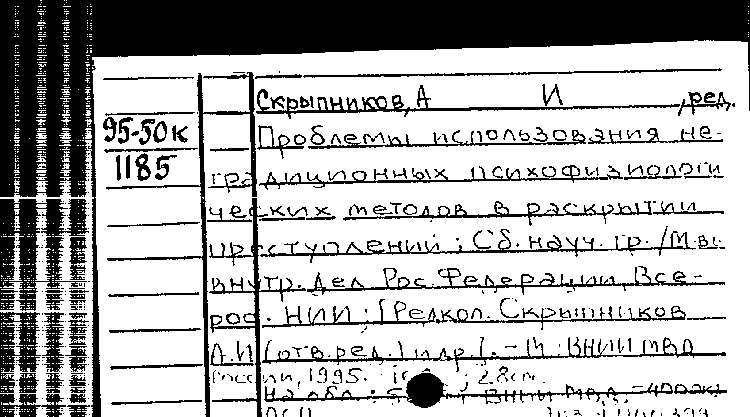 Скрыпников, А И , ред.
95-50к
1185
Проблемы использования не-
традиционных психофизиологи
ческих методов в раскрытии
преступлений ; Сб. науч. тр. / М-во
внутр. дел Рос. Федерации, Все-
рос. НИИ ; [Редкол. Скрыпников
А.И. (отв. ред.) и др.]. - М : ВНИИ МВД
России, 1995. ; 28см.
На обл. : ВНИИ МВД. - 400экз